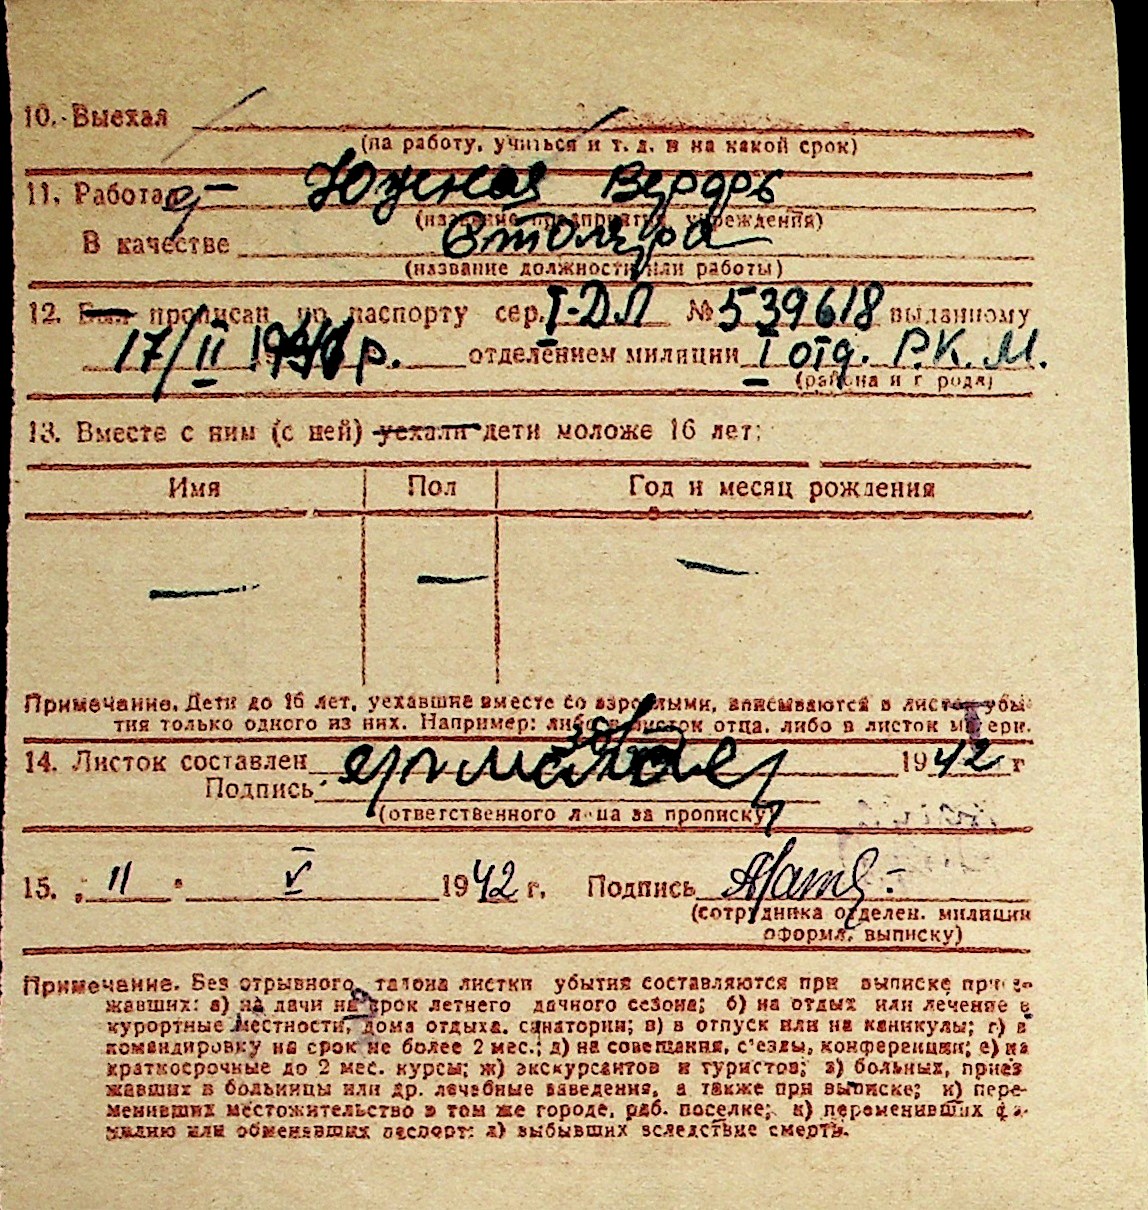 10. Выехал
(на работу, учиться и т. д. и на какой срок)
11. Работа Южная Верфь
(название предприятия, учреждения)
В качестве Столяра
(название должности или работы)
12. Был прописан по паспорту сер. I-ДЛ № 539618 выданному
17/II р. отделением милиции I отд. Р.К.М.
(района и города)
13. Вместе с ним (с ней) уехали дети моложе 16 лет:
Имя Пол Год и месяц рождения
— — —
Примечание. Дети до 16 лет, уехавшие вместе со взрослыми, вписываются в листок убы-
тия только одного из них. Например: либо в листок отца, либо в листок матери.
14. Листок составлен 1942 г
Подпись
(ответственного лица за прописку)
15. „11" V 1942 г. Подпись
(сотрудника отделен. милиции
оформл. выписку)
Примечание. Без отрывного талона листки убытия составляются при выписке приез-
жавших: а) на дачи на срок летнего дачного сезона; б) на отдых или лечение в
курортные местности, дома отдыха, санатории; в) в отпуск или на каникулы; г) в
командировку на срок не более 2 мес.; д) на совещания, с'езды, конференции; е) на
краткосрочные до 2 мес. курсы; ж) экскурсантов и туристов; з) больных, приез
жавших в больницы или др. лечебные заведения, а также при выписке; и) пере-
менивших местожительство в том же городе, раб. поселке; к) переменивших фа-
милию или обменявших паспорт: л) выбывших вследствие смерти.